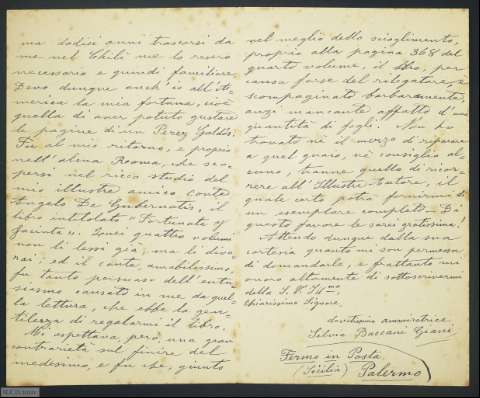 ma dodici anni trascorsi da
me nel Chilì me lo resero
necessario e quindi famigliare.
Devo dunque anch'io all'A-
merica la mia fortuna, cioè
quella di aver potuto gustare
le pagine di un Perez Galdós.
Fu al mio ritorno, e proprio
nell'alma Rooma, che sco-
persi nel ricco studio del
mio illustre amico conte
Angelo De Gubernatis, il
libro intitolato "Fortunata y
Jacinta". Quei quattro volumi
non li lessi già, ma li divo-
rai; ed il conte, amabilissimo,
fu tanto persuaso dell'entu-
siasmo causato in me da quel-
la lettura, che ebbe la gen-
tilezza di regalarmi il libro.
Mi aspettava, però, una gran
contrarietà sul finire del
medesimo, e fu che, giunta
nel meglio dello scioglimento,
proprio alla pagina 368 del
quarto volume, il libro, per
causa forse del rilegatore, è
scompaginato barbaramente,
anzi mancante affatto d'una
quantità di fogli. Non ho
trovato nè il mezzo di riparare
a quel guaio, nè consiglio al-
cuno, tranne quello di ricor-
rere all'Illustre Autore, il
quale certo potrà fornirmi di
un esemplare completo. Di
questo favore le sarei gratissima!
Attendo dunque dalla sua
cortesia quanto mi son permessa
di domandarle, e frattanto mi
onoro altamente di sottoscrivermi
della S. V. Ill.ma
Chiarissimo Signore,
devotissima ammiratrice
Silvia Baccani Giani
Fermo in Posta
(Sicilia) Palermo